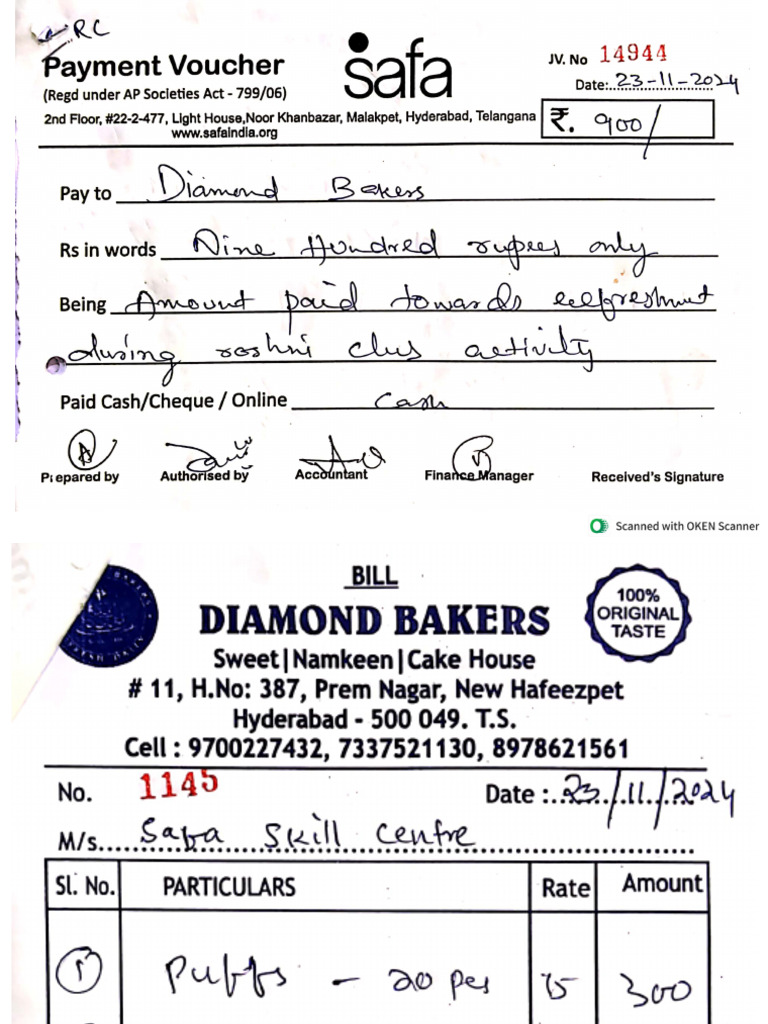 RC
Payment Voucher
safa
JV. No 14944
(Regd under AP Societies Act - 799/06)
Date:..23-11-2024
2nd Floor, #22-2-477, Light House,Noor Khanbazar, Malakpet, Hyderabad, Telangana
www.safaindia.org
₹. 900/
Pay to Diamond Bakers
Rs in words Nine Hundred rupees only
Being Amount paid towards
during roshni activity
Paid Cash/Cheque / Online Cash
Prepared by Authorised by Accountant Finance Manager Received's Signature
Scanned with OKEN Scanner
BILL
DIAMOND BAKERS
100% ORIGINAL TASTE
Sweet|Namkeen|Cake House
# 11, H.No: 387, Prem Nagar, New Hafeezpet
Hyderabad - 500 049. T.S.
Cell : 9700227432, 7337521130, 8978621561
No. 1145 Date :..23/11/2024
M/s....Safa Skill Centre
Sl. No. PARTICULARS Rate Amount
1 Puffs - 20 pcs 15 300